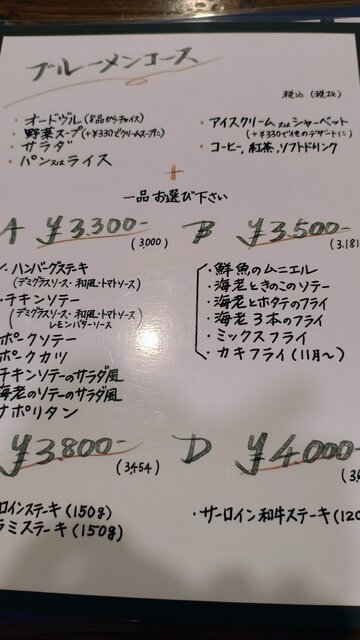 ブルーメンコース
税込 (税抜)
・オードヴル (8品からチョイス)
・野菜スープ (+¥330でクリームスープに)
・サラダ
・パン又はライス
・アイスクリーム又はシャーベット
(+¥330で他のデザートに)
・コーヒー, 紅茶, ソフトドリンク
+
一品お選び下さい
A ¥3.300-
(3,000)
・ハンバーグステキ
(デミグラスソース・和風・トマトソース)
・チキンソテー
(デミグラスソース・和風・トマトソース
レモンバターソース)
ポークソテー
ポークカツ
チキンソテーのサラダ風
海老のソテーのサラダ風
ナポリタン
B ¥3.500-
(3.181
・鮮魚のムニエル
・海老ときのこのソテー
・海老とホタテのフライ
・海老3本のフライ
・ミックスフライ
・カキフライ (11月〜)
¥3.800-
(3,454)
ロインステーキ (150g)
ラミステーキ (150g)
D ¥4.000-
・サーロイン和牛ステーキ (120